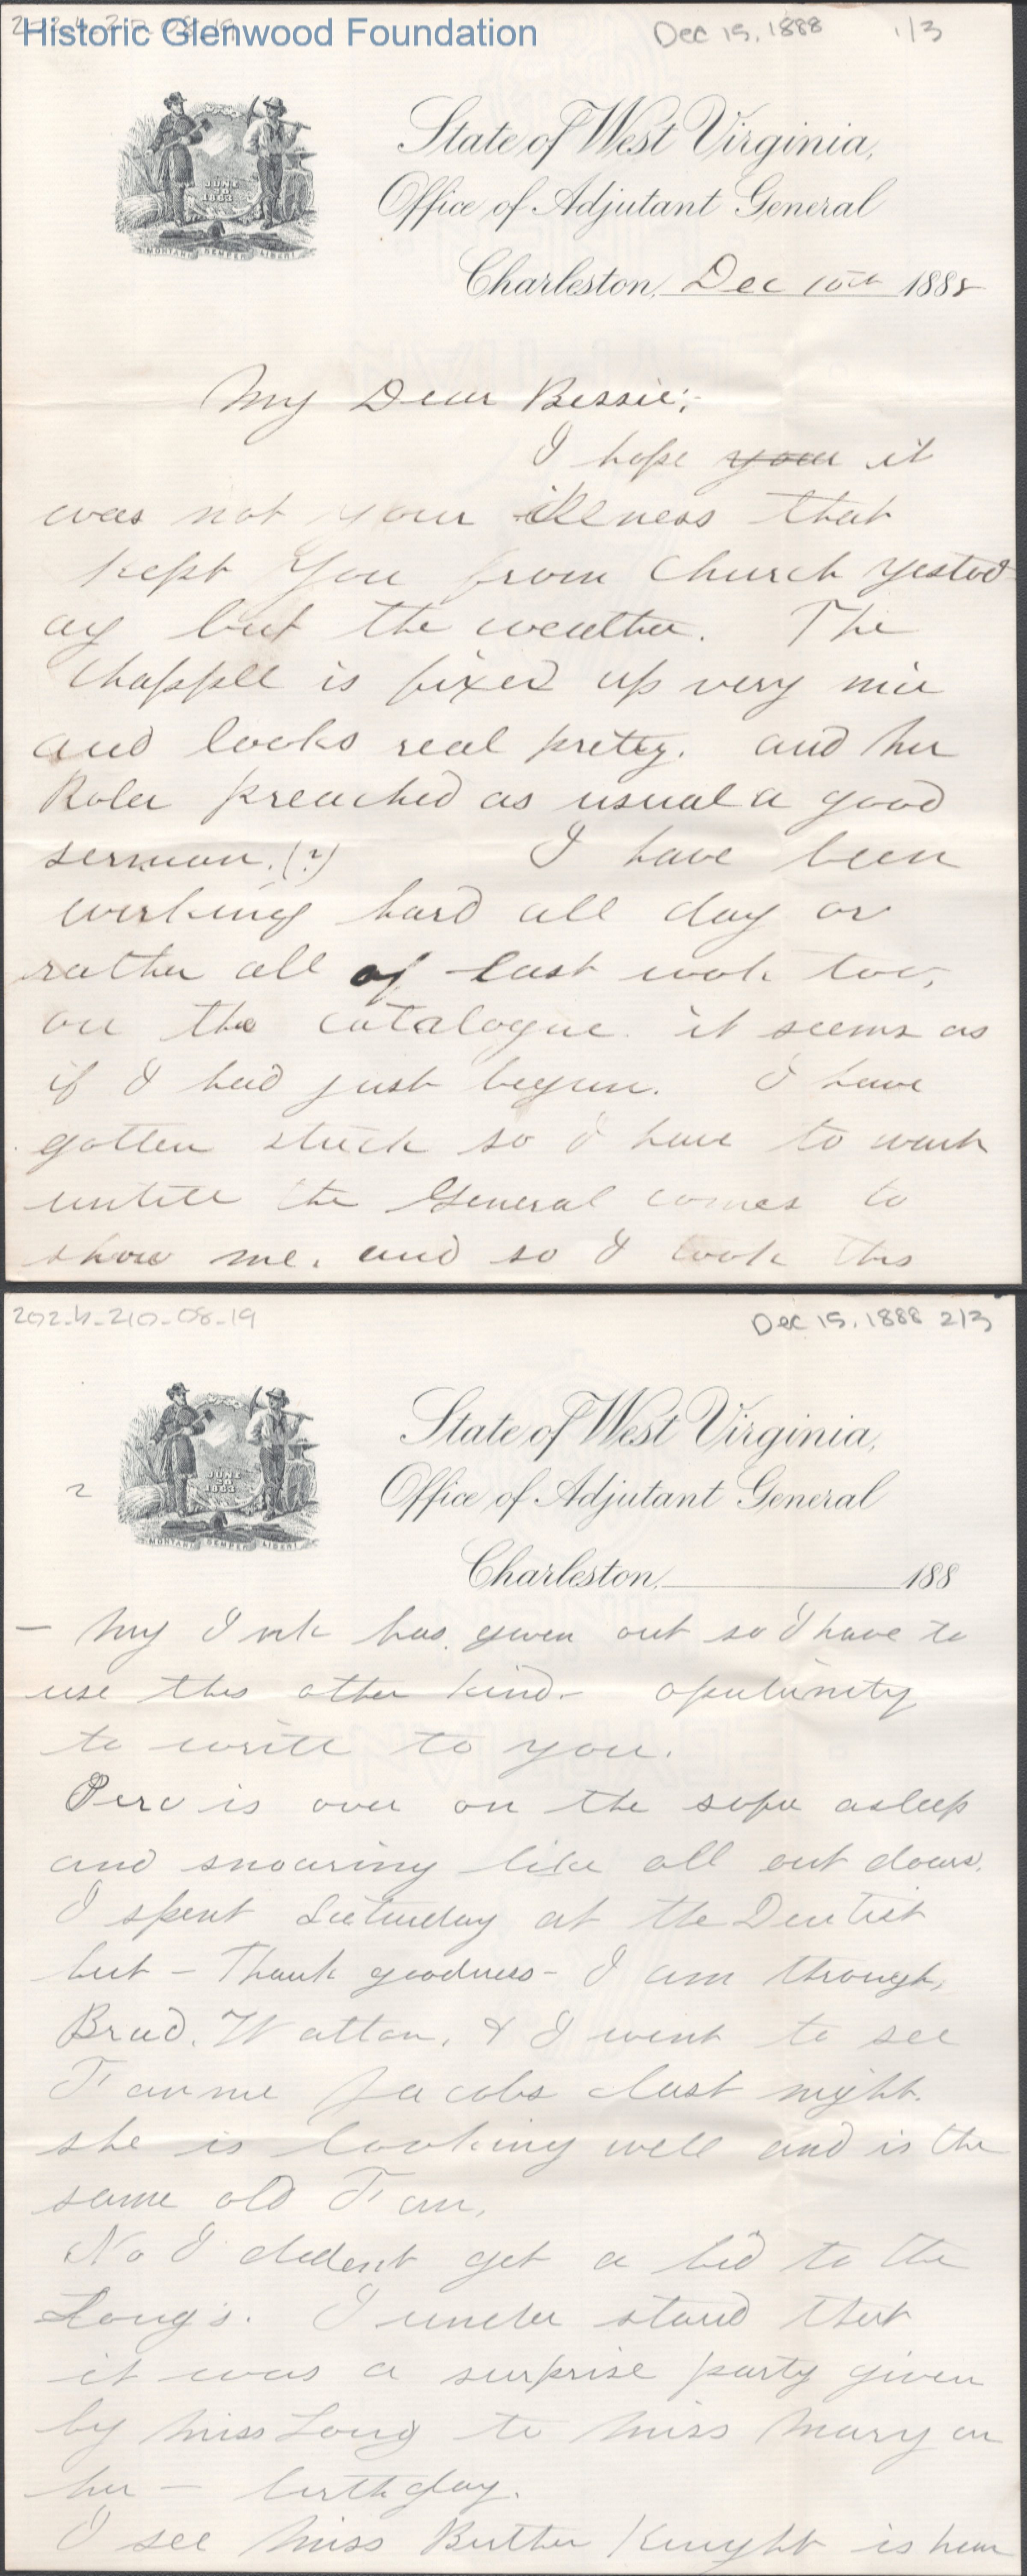 202-4-210-08-19
Historic Glenwood Foundation
Dec 15, 1888 1/3
JUNE
20
1863
MONTANI SEMPER LIBERI
State of West Virginia,
Office of Adjutant General
Charleston, Dec 10th 1888
My Dear Bessie;-
I hope your it
was not your illness that
kept you from Church yesterd
ay but the weather. The
Chappell is fixed up very nice
and looks real pretty. and
preached as usual a good
sermon.(?) I have been
working hard all day or
rather all of last week too,
on the catalogue. it seems as
if I had just begun. I have
gotten stuck so I have to wait
untill the General comes to
show me. and so I took this
202-4-210-08-19
Dec 15, 1888 2/3
2
JUNE
20
1863
MONTANI SEMPER LIBERI
State of West Virginia,
Office of Adjutant General
Charleston, 188
- My Ink has given out so I have to
use this other kind- oputunity
to write to you.
Perc is over on the sofa asleep
and snoaring like all out doars.
I spent Saturday at the Dentist
but - Thank goodness - I am through,
Brad. Watton, & I went to see
Fannie Jacobs last night.
she is looking well and is the
same old Fan,
No I dident get a bid to the
Long's. I under stand that
it was a surprise party given
by Miss Long to Miss Mary on
her - birthday.
I see Miss Knight is hear